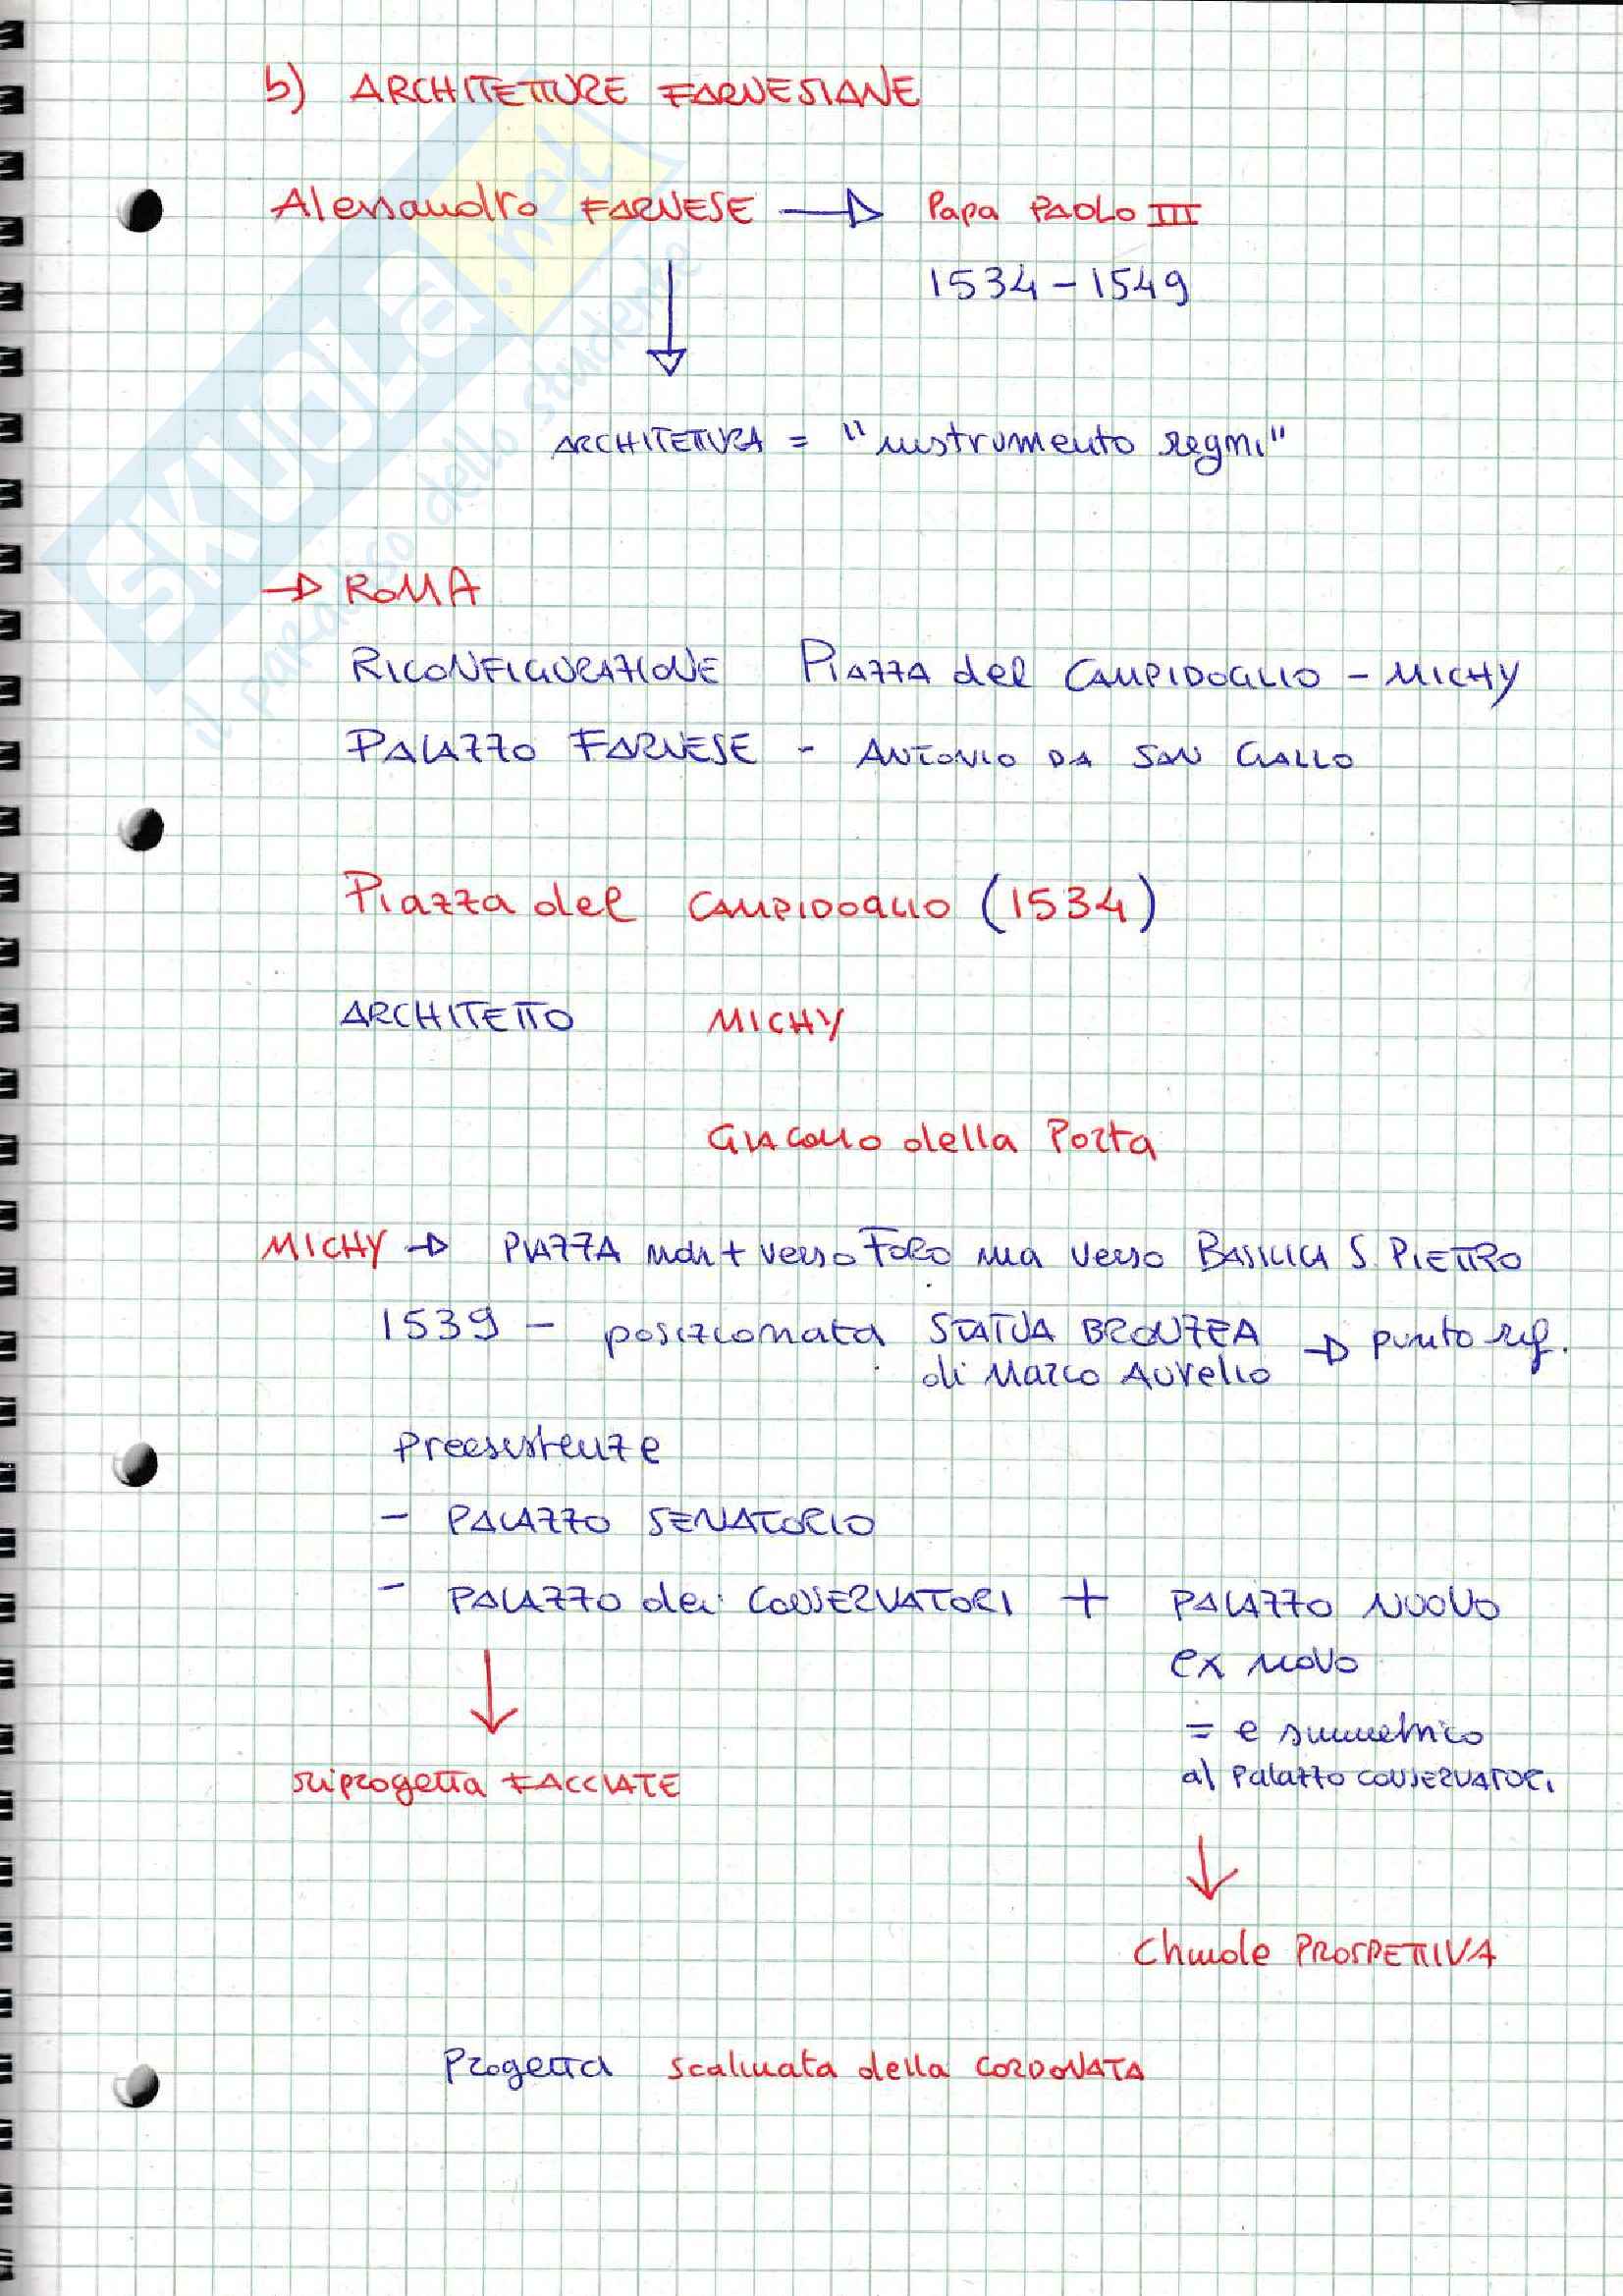 b) ARCHITETTURE FARNESIANE
Alessandro FARNESE → Papa PAOLO III
1534 - 1549
ARCHITETTURA = "instrumento regni"
→ ROMA
RICONFIGURAZIONE PIAZZA del CAMPIDOGLIO - MICHY
PALAZZO FARNESE - ANTONIO DA SAN GALLO
Piazza del CAMPIDOGLIO (1534)
ARCHITETTO MICHY
GIACOMO della PORTA
MICHY → PIAZZA non + verso FORO ma verso BASILICA S. PIETTRO
1539 - posizionata STATUA BRONZEA → punto rif.
di MARCO AURELIO
preesistenze
- PALAZZO SENATORIO
- PALAZZO dei CONSERVATORI + PALAZZO NUOVO
ex novo
= e simmetrico
al PALAZZO CONSERVATORI
riprogetta FACCIATE
Chiude PROSPETTIVA
Progetta scalinata della CORDONATA
SKUOLA.net
il paradiso dello studente